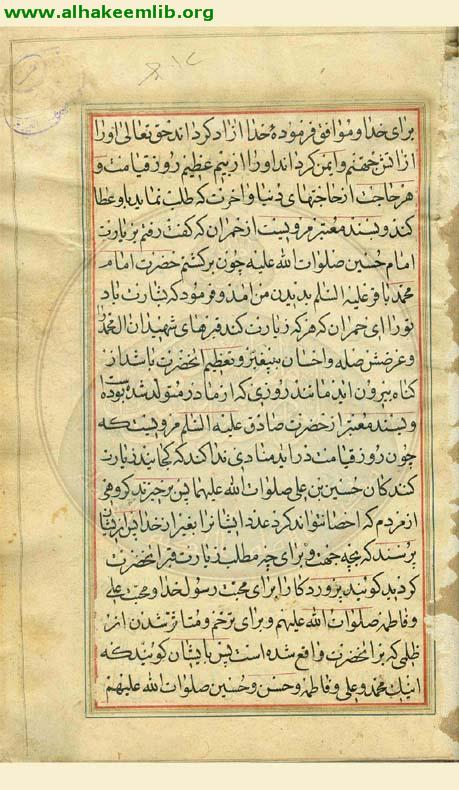 www.alhakeemlib.org
برای خدا و موافق فرمودهٔ خدا ازاد کرداند حق تعالی اورا
از اتش جهنم و ایمن کرداند اورا از بیم عظیم روز قیامت و
هر حاجت از حاجتهای دنیا و اخرت که طلب نماید باو عطا
کند و بسند معتبر مرویست از حمران که کفت رفتم بزیارت
امام حسین صلوات الله علیه چون برکشتم حضرت امام
محمد باقر علیه السلم بدیدن من امد و فرمود که بشارت باد
تورا ای حمران که هر که زیارت کند قبرهای شهیدان ال محمد را
و غرضش صله و احسان پیغمبر و تعظیم انحضرت باشد از
کناه بیرون اید مانند روزی که از مادر متولد شده بوده است
و بسند معتبر از حضرت صادق علیه السلم مرویست که
چون روز قیامت در اید منادی ندا کند که کجایند زیارت
کنندکان حسین بن علی صلوات الله علیهما پس برخیزند کروهی
از مردم که احصا نتواند کرد عدد ایشانرا بغیر از خدا پس از ایشان
پرسند که بچه جهت و برای چه مطلب زیارت قبر انحضرت
کردید کویند پروردکارا برای محبت رسول خدا و محبت علی
و فاطمه صلوات الله علیهم و برای ترحم و متاثر شدن از
ظلمی که بر انحضرت واقع شده است پس بایشان کویند که
اینک محمد و علی و فاطمه و حسن و حسین صلوات الله علیهم